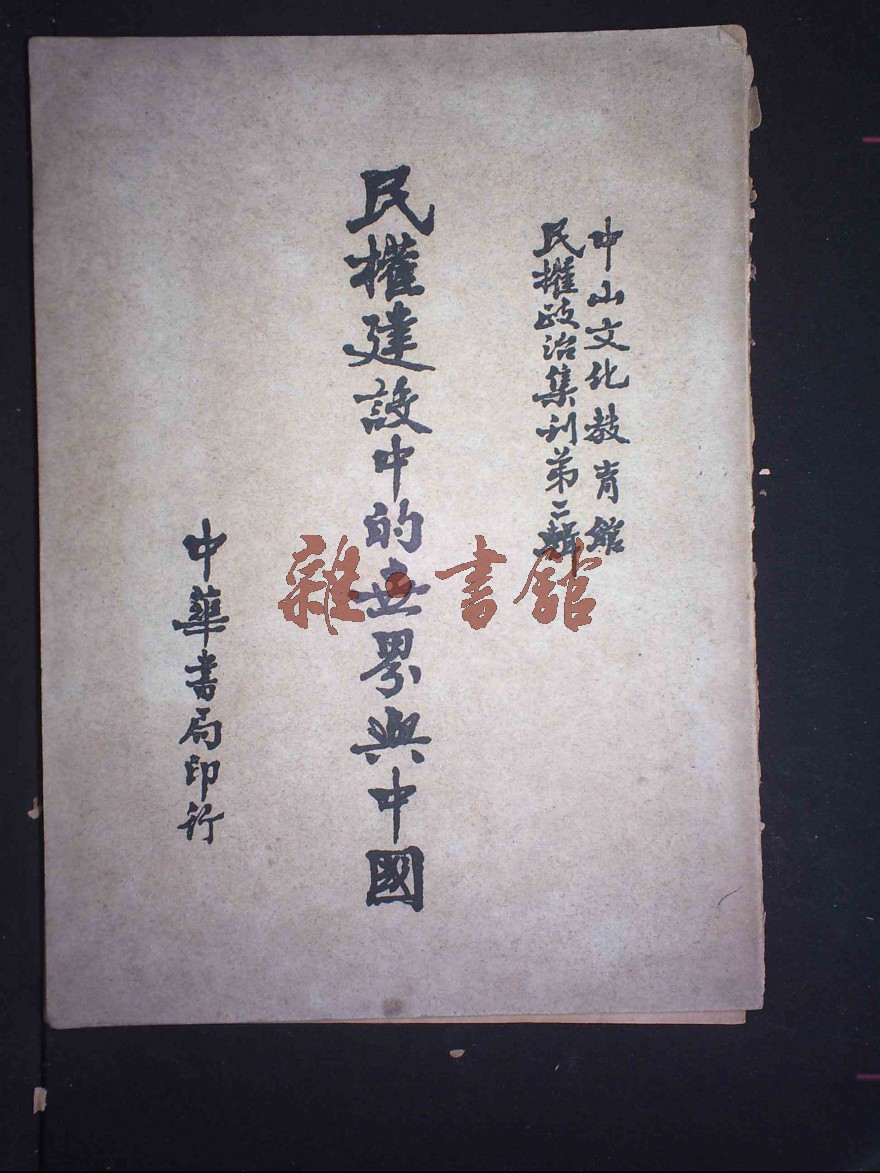 中山文化教育館
民權政治集刊第二輯
民權建設中的世界與中國
中華書局印行
雜·書館